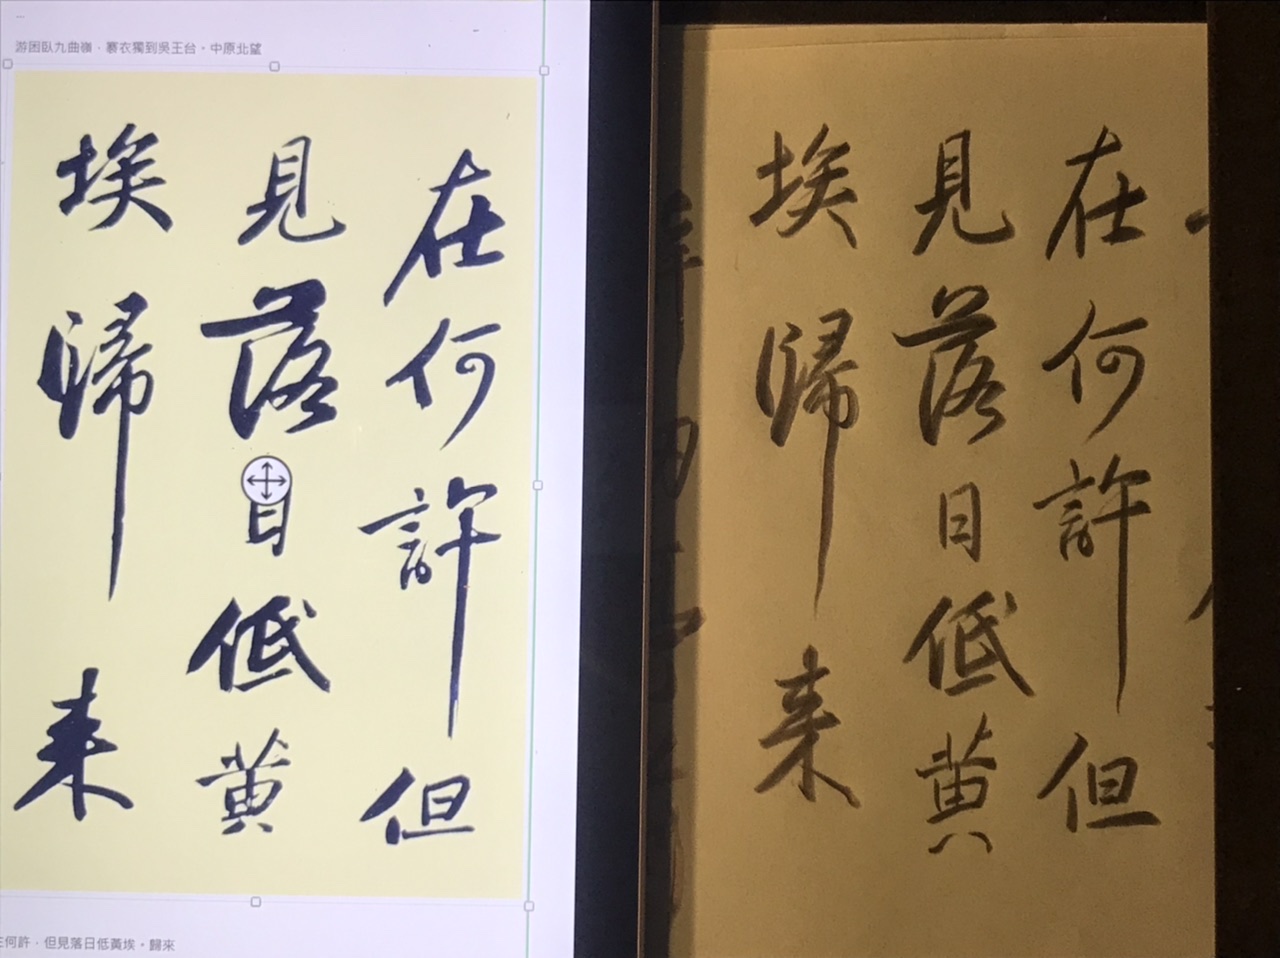 游困臥九曲嶺，褰衣獨到吳王台。中原北望
在何許但
見落日低黄
埃歸来
在何許，但見落日低黃埃。歸來
在何許但
見落日低黄
埃歸来